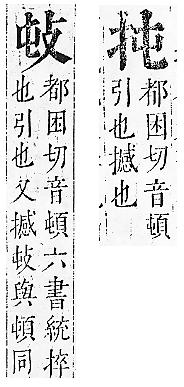 扽
都困切音頓
引也撼也
都困切音頓六書統捽
也引也又撼與頓同